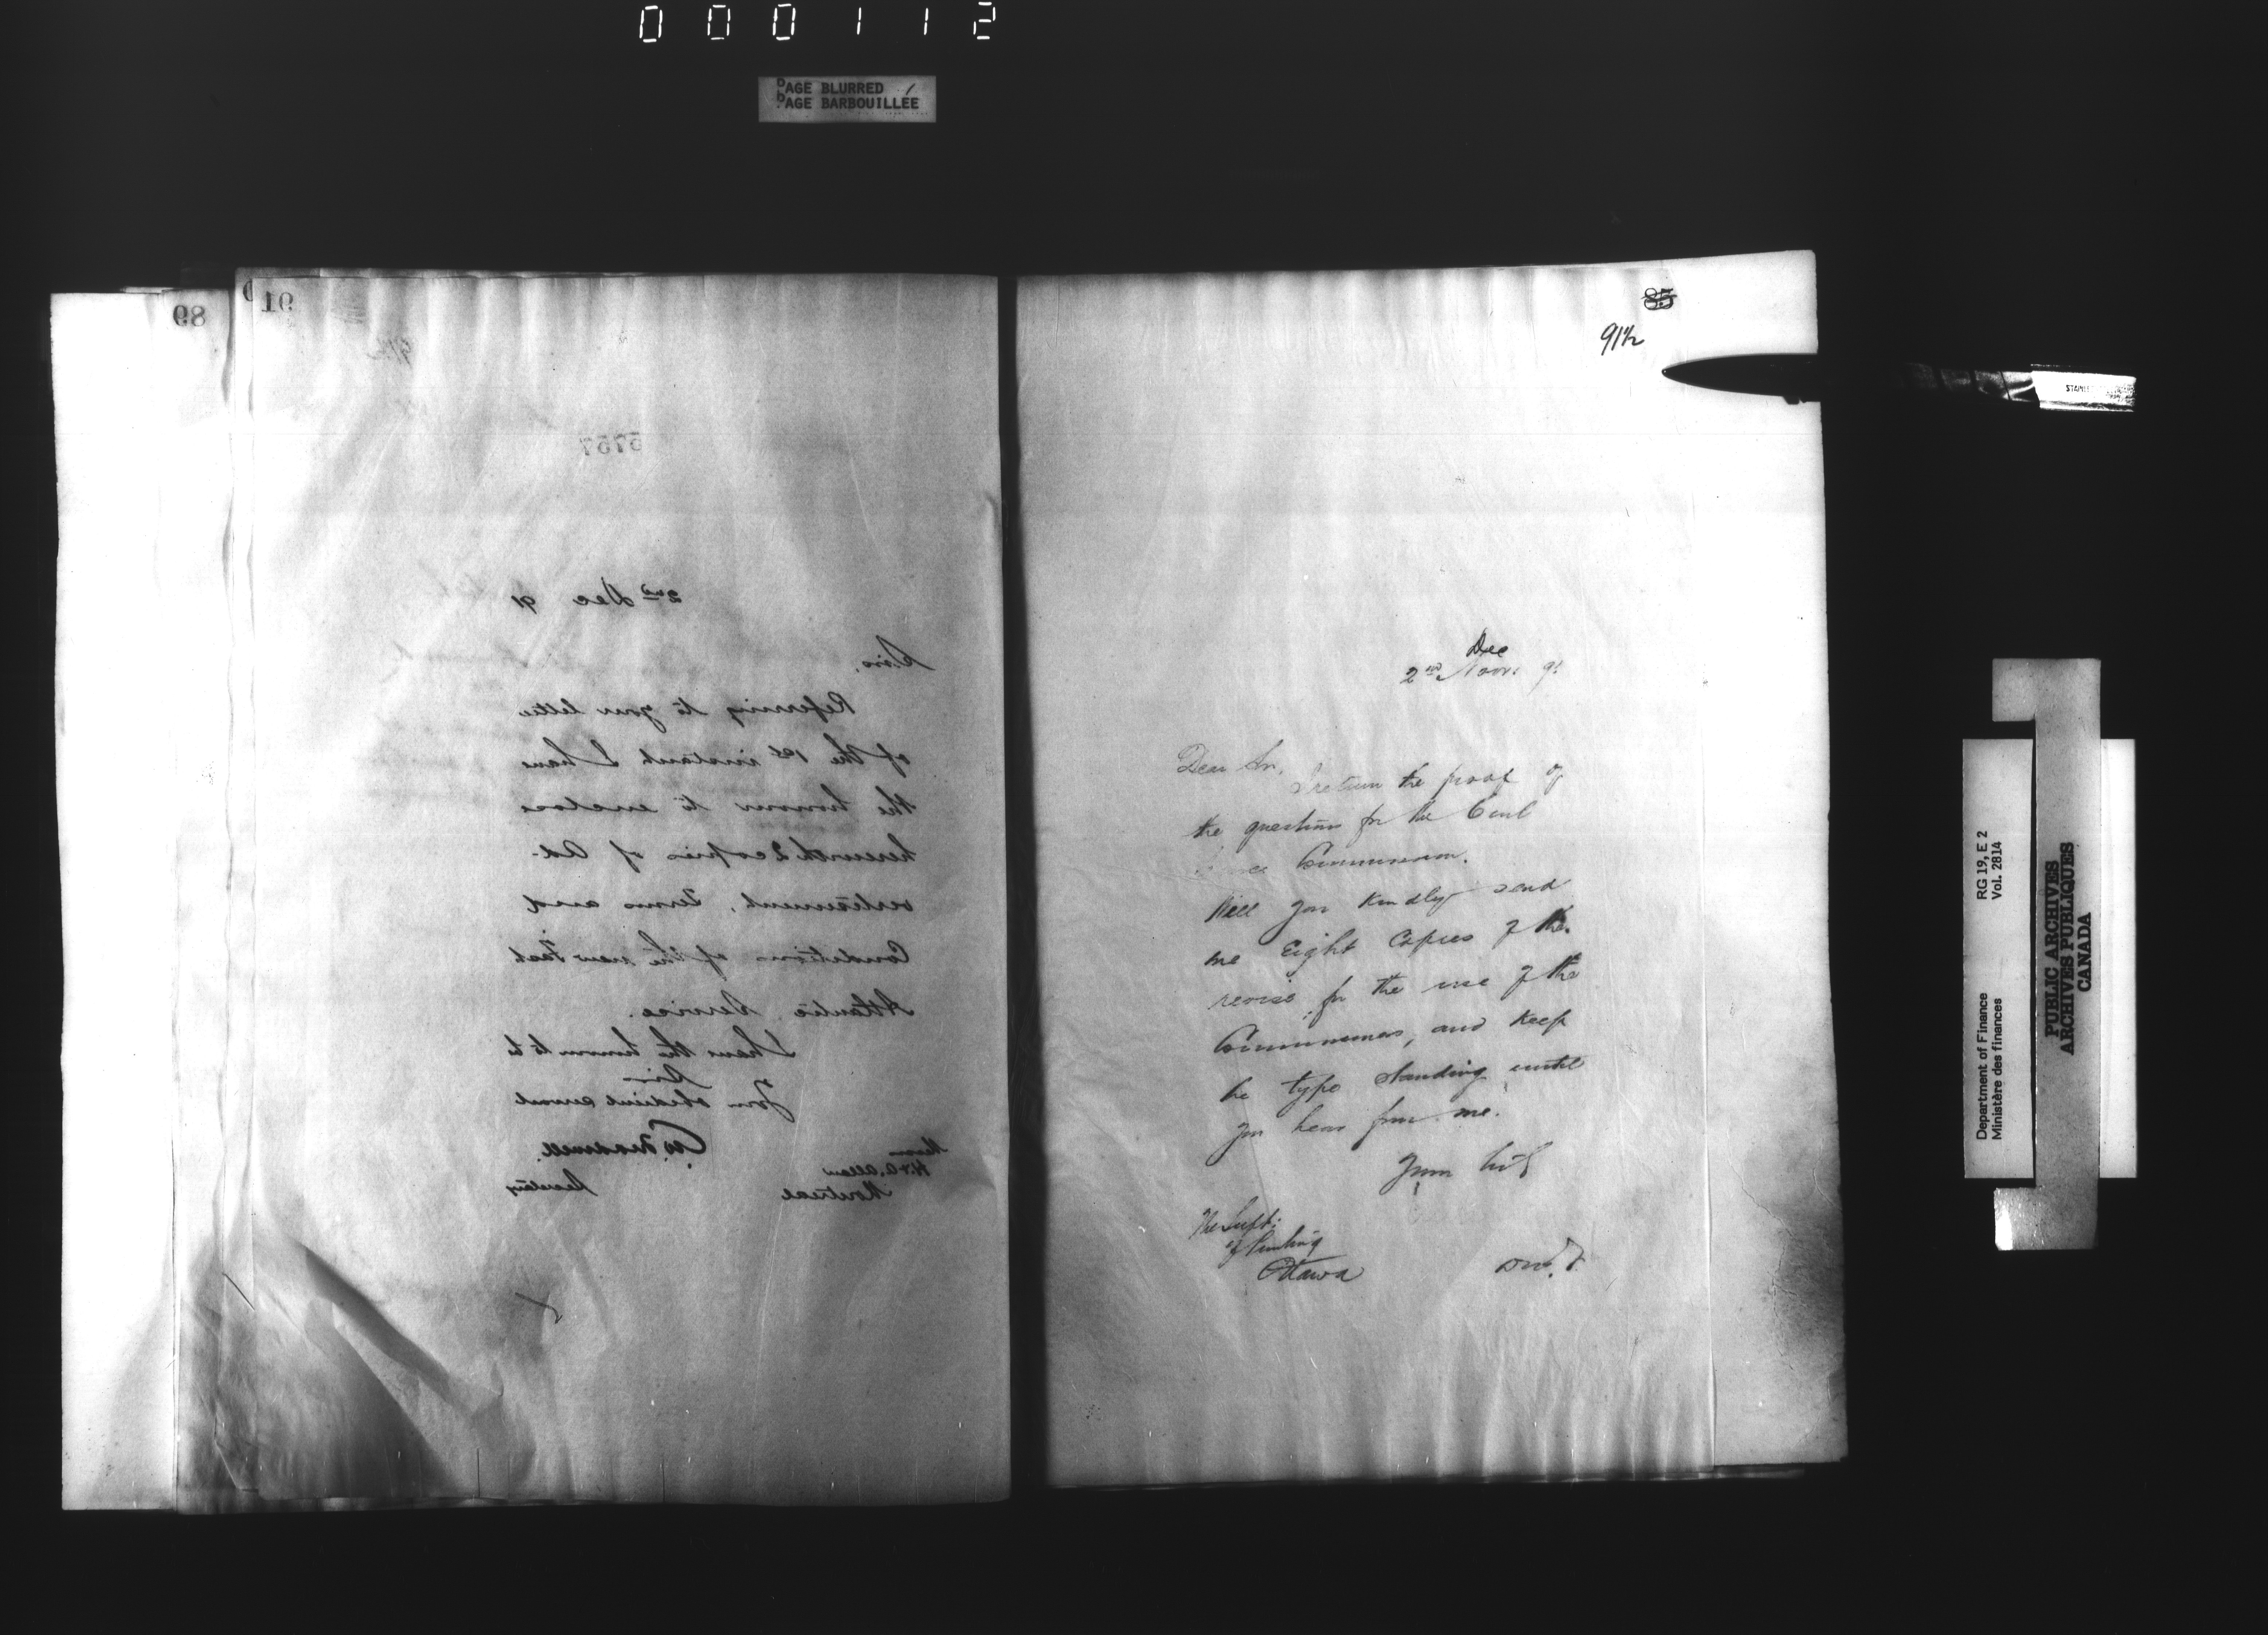 000112
PAGE BLURRED
PAGE BARBOUILLÉE
89
91
5757
2nd Dec 91
Sirs,
Referring to your letter
of the 1st instant I have
the honour to enclose
herewith 2 copies of Ad-
vertisement, Terms and
Conditions of the new Fast
Atlantic Service.
I have the honour to be
Sir
Your obedient servant
Messrs
H & A. Allan
Montreal
Secretary
85
91½
Dec
2nd Novr 91
Dear Sir,
I return the proof of
the questions for the Civil
Commission.
Will you kindly send
me Eight Copies of the
revise for the use of the
Commissioners, and keep
the type standing until
you hear from me.
Yours truly
The Supt:
of Printing
Ottawa
STAINLESS
Department of Finance
Ministère des finances
RG 19, E 2
Vol. 2814
PUBLIC ARCHIVES
ARCHIVES PUBLIQUES
CANADA